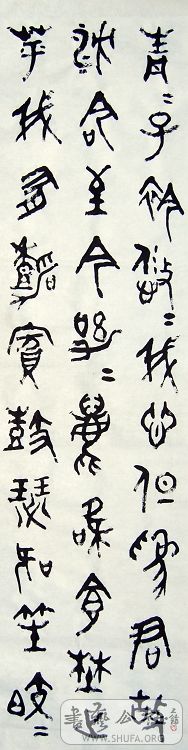 青〻子衿悠〻我心但為君故
沈吟至今呦〻鹿鳴食野之
苹我有嘉賓鼓瑟吹笙皎〻
WWW.SHUFA.ORG